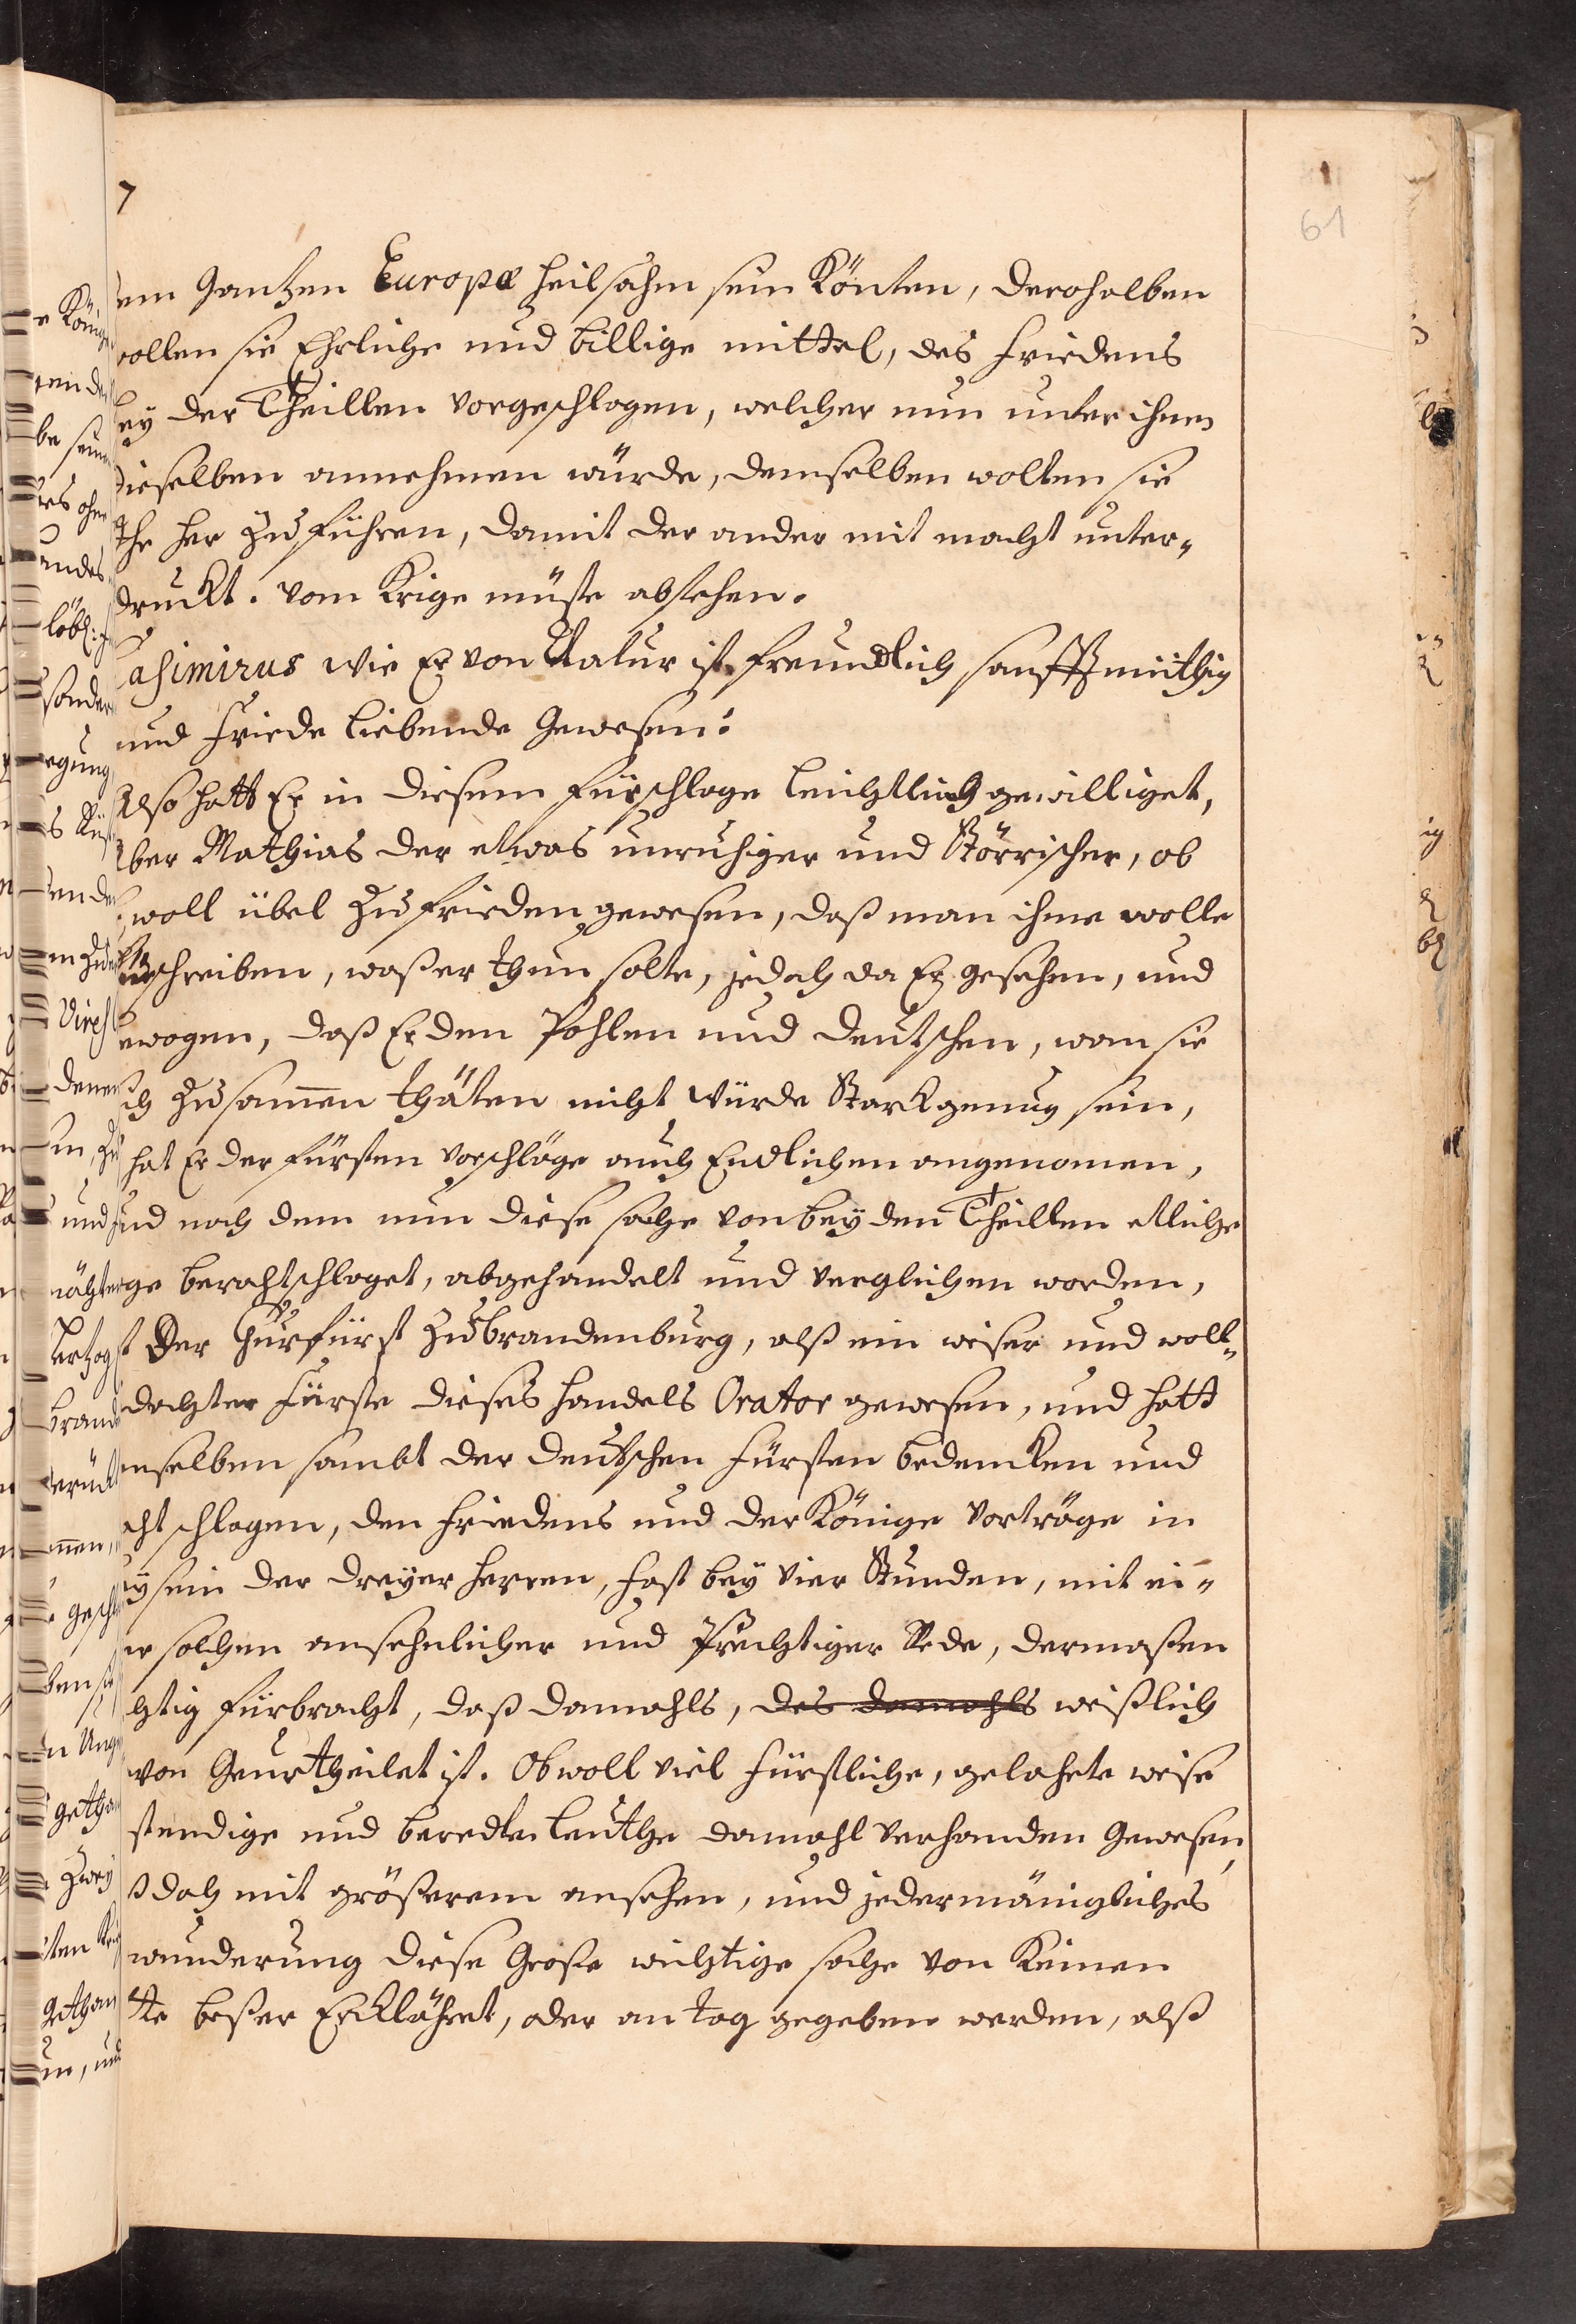 7
61
em Gantzen Europæ heilsahm sein Könten, deroholben
wollen sie Ehrliche und billige mittel, des Friedens
bey der Theillen vorgeschlagen, welcher nun unter ihnen
dieselben annehmen würde, demselben wolten sie
her zu führen, damit der ander mit macht unter„
druckt. vom Krige müste abstehen.
Casimirus wie Er von Natur ist freundlich sanfftmüthig
und Friede liebende Gewesen:
Also hatt Er in diesem Fürschlage leichtlich gewilliget,
Aber Mathias der etwas unruhiger und Störrischer, ob
woll übel zu frieden gewesen, daß man ihme wolle
fürschreiben, waß er thun solte, jedoch da Er gesehen, und
erwogen, daß Er den Pohlen und Deutschen, wan sie
sich zusam̅en thäten nicht würde Starck genug sein,
hat Er der Fürsten vorschläge auch Endlichen angenomen,
und nach dem nun diese sache von beyden Theillen etliche
ge berathschlaget, abgehandelt und verglichen worden,
st Der Churfürst zu brandenburg, alß ein weiser und woll„
dachter Fürste dieses handels Orator gewesen, und hatt
enselben sambt der deutschen Fürsten bedencken und
cht schlagen, den Friedens und der Könige vorträge in
ysein der dreyer herren, fast bey vier Stunden, mit ei„
er solchen ansehnlicher und Prächtiger Rede, dermaßen
chtig fürbracht, daß damahls, des damahls weißlich
von Geurtheilet ist. Ob woll viel Fürstliche, gelahrte weise
stendige und beredte leuthe damahl verhanden Gewesen
ß doch mit größerem ansehen, und jedermäniglichs
wunderung diese Große wichtige sache von Keinen
tte beßer Erklähret, oder an tag gegeben werden, alß